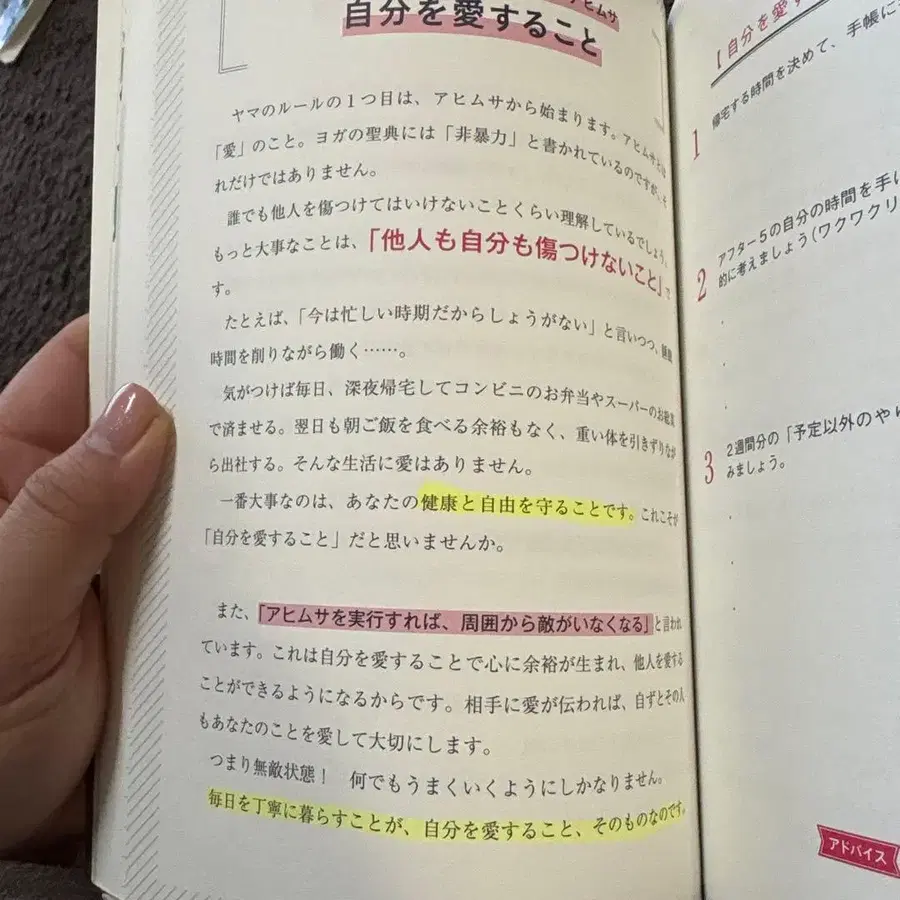 アヒムサ
自分を愛すること
ヤマのルールの1つ目は、アヒムサから始まります。アヒムサとは
「愛」のこと。ヨガの聖典には「非暴力」と書かれているのですが、そ
れだけではありません。
誰でも他人を傷つけてはいけないことくらい理解しているでしょう。
もっと大事なことは、「他人も自分も傷つけないこと」で
す。
たとえば、「今は忙しい時期だからしょうがない」と言いつつ、睡眠
時間を削りながら働く……。
気がつけば毎日、深夜帰宅してコンビニのお弁当やスーパーのお惣菜
で済ませる。翌日も朝ご飯を食べる余裕もなく、重い体を引きずりなが
ら出社する。そんな生活に愛はありません。
一番大事なのは、あなたの健康と自由を守ることです。これこそが
「自分を愛すること」だと思いませんか。
また、「アヒムサを実行すれば、周囲から敵がいなくなる」と言われ
ています。これは自分を愛することで心に余裕が生まれ、他人を愛する
ことができるようになるからです。相手に愛が伝われば、自ずとその人
もあなたのことを愛して大切にします。
つまり無敵状態！　何でもうまくいくようにしかなりません。
毎日を丁寧に暮らすことが、自分を愛すること、そのものなのです。
【自分を愛す
1 帰宅する時間を決めて、手帳に
2 アフター5の自分の時間を手に
的に考えましょう(ワクワクリ
3 2週間分の「予定以外のや
みましょう。
アドバイス